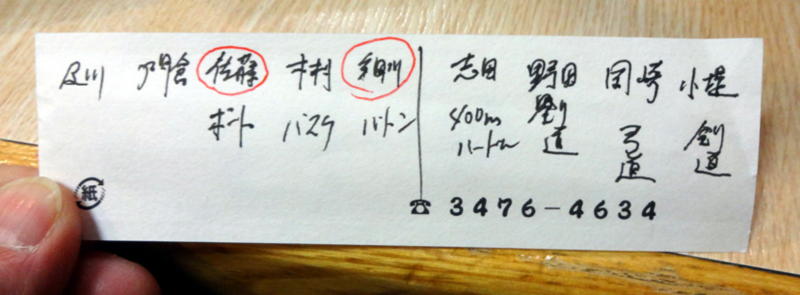 及川 門倉 佐藤 木村 細川 志田 野田 岡崎 小堤
ボート バスケ バトン 400m 剣道 弓道 剣道
ハードル
紙
☎ 3476-4634